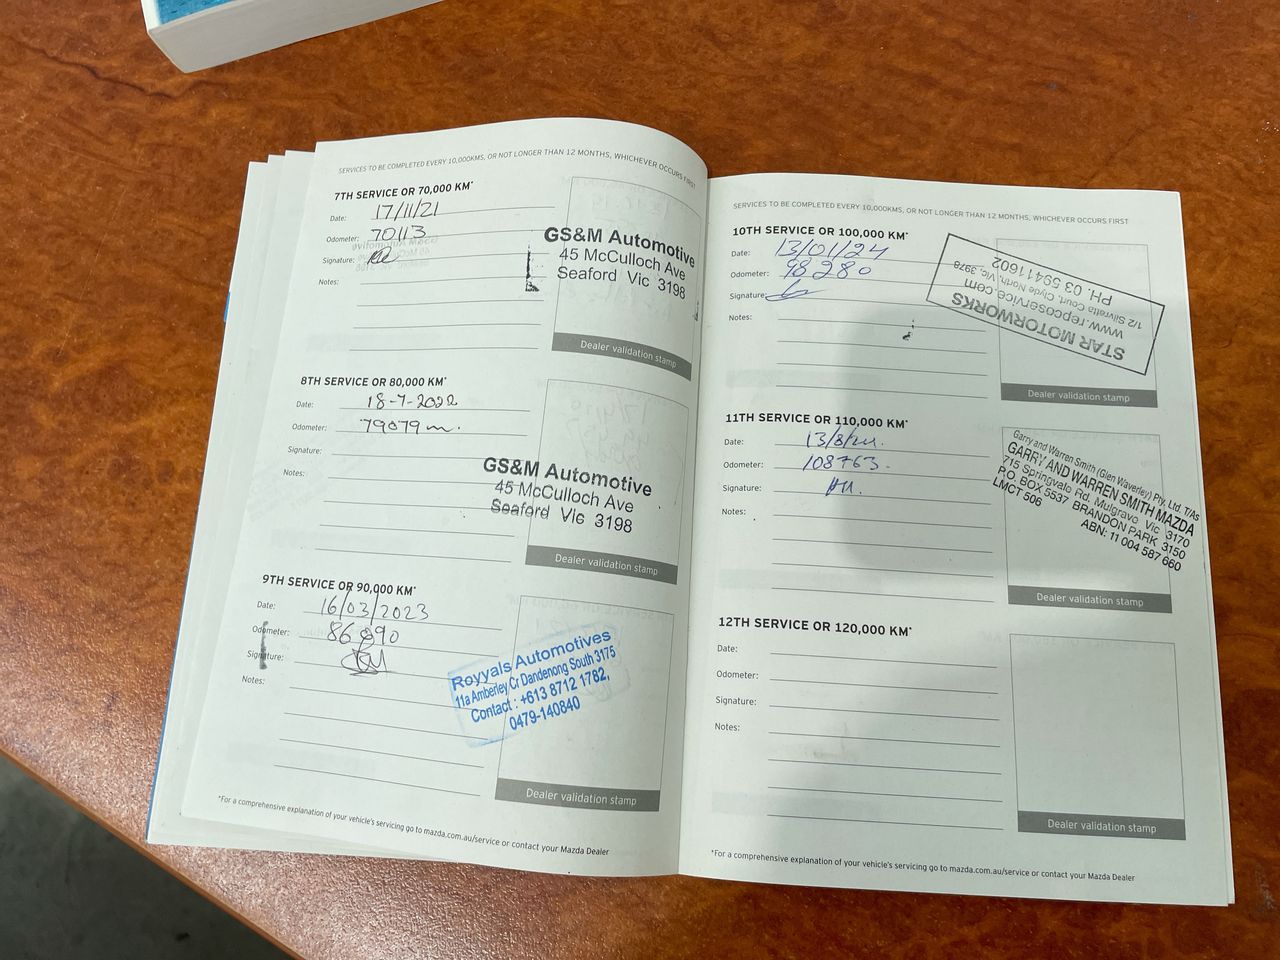 SERVICES TO BE COMPLETED EVERY 10,000KMS, OR NOT LONGER THAN 12 MONTHS, WHICHEVER OCCURS FIRST
7TH SERVICE OR 70,000 KM*
Date: 17/11/21
Odometer: 70113
Signature:
Notes:
GS&M Automotive
45 McCulloch Ave
Seaford Vic 3198
Dealer validation stamp
8TH SERVICE OR 80,000 KM*
Date: 18-7-2022
Odometer: 79079
Signature:
Notes:
GS&M Automotive
45 McCulloch Ave
Seaford Vic 3198
Dealer validation stamp
9TH SERVICE OR 90,000 KM*
Date: 16/03/2023
Odometer: 86890
Signature:
Notes:
Royyals Automotives
11a Amberley Cr Dandenong South 3175
Contact : +613 8712 1782,
0479-140840
Dealer validation stamp
*For a comprehensive explanation of your vehicle's servicing go to mazda.com.au/service or contact your Mazda Dealer
SERVICES TO BE COMPLETED EVERY 10,000KMS, OR NOT LONGER THAN 12 MONTHS, WHICHEVER OCCURS FIRST
10TH SERVICE OR 100,000 KM*
Date: 13/01/24
Odometer: 98280
Signature:
Notes:
STAR MOTORWORKS
www.repcoservice.com
1/2 Silvretta Court, Clyde North, Vic, 3978
PH. 03 59411602
Dealer validation stamp
11TH SERVICE OR 110,000 KM*
Date: 13/8/24.
Odometer: 108763.
Signature:
Notes:
Garry and Warren Smith (Glen Waverley) Pty. Ltd. T/As
GARRY AND WARREN SMITH MAZDA
715 Springvale Rd. Mulgrave Vic 3170
P.O. BOX 5537 BRANDON PARK 3150
LMCT 506 ABN: 11 004 587 660
Dealer validation stamp
12TH SERVICE OR 120,000 KM*
Date:
Odometer:
Signature:
Notes:
Dealer validation stamp
*For a comprehensive explanation of your vehicle's servicing go to mazda.com.au/service or contact your Mazda Dealer